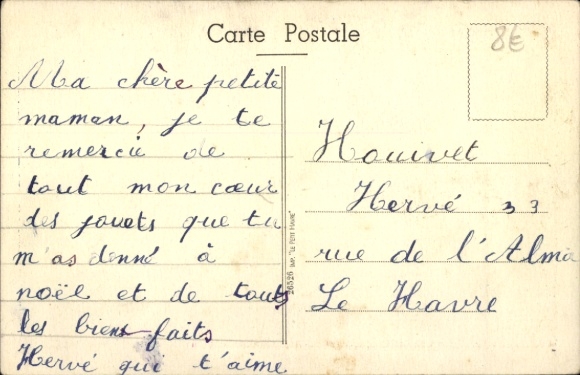 Carte Postale
8E
Ma chère petite
maman, je te
remercie de
tout mon cœur
des jouets que tu
m'as donné à
noël et de touts
les bien faits
Hervé qui t'aime
26526 IMP. "LE PETIT HAVRE"
Houivet
Hervé 33
rue de l'Alma
Le Havre